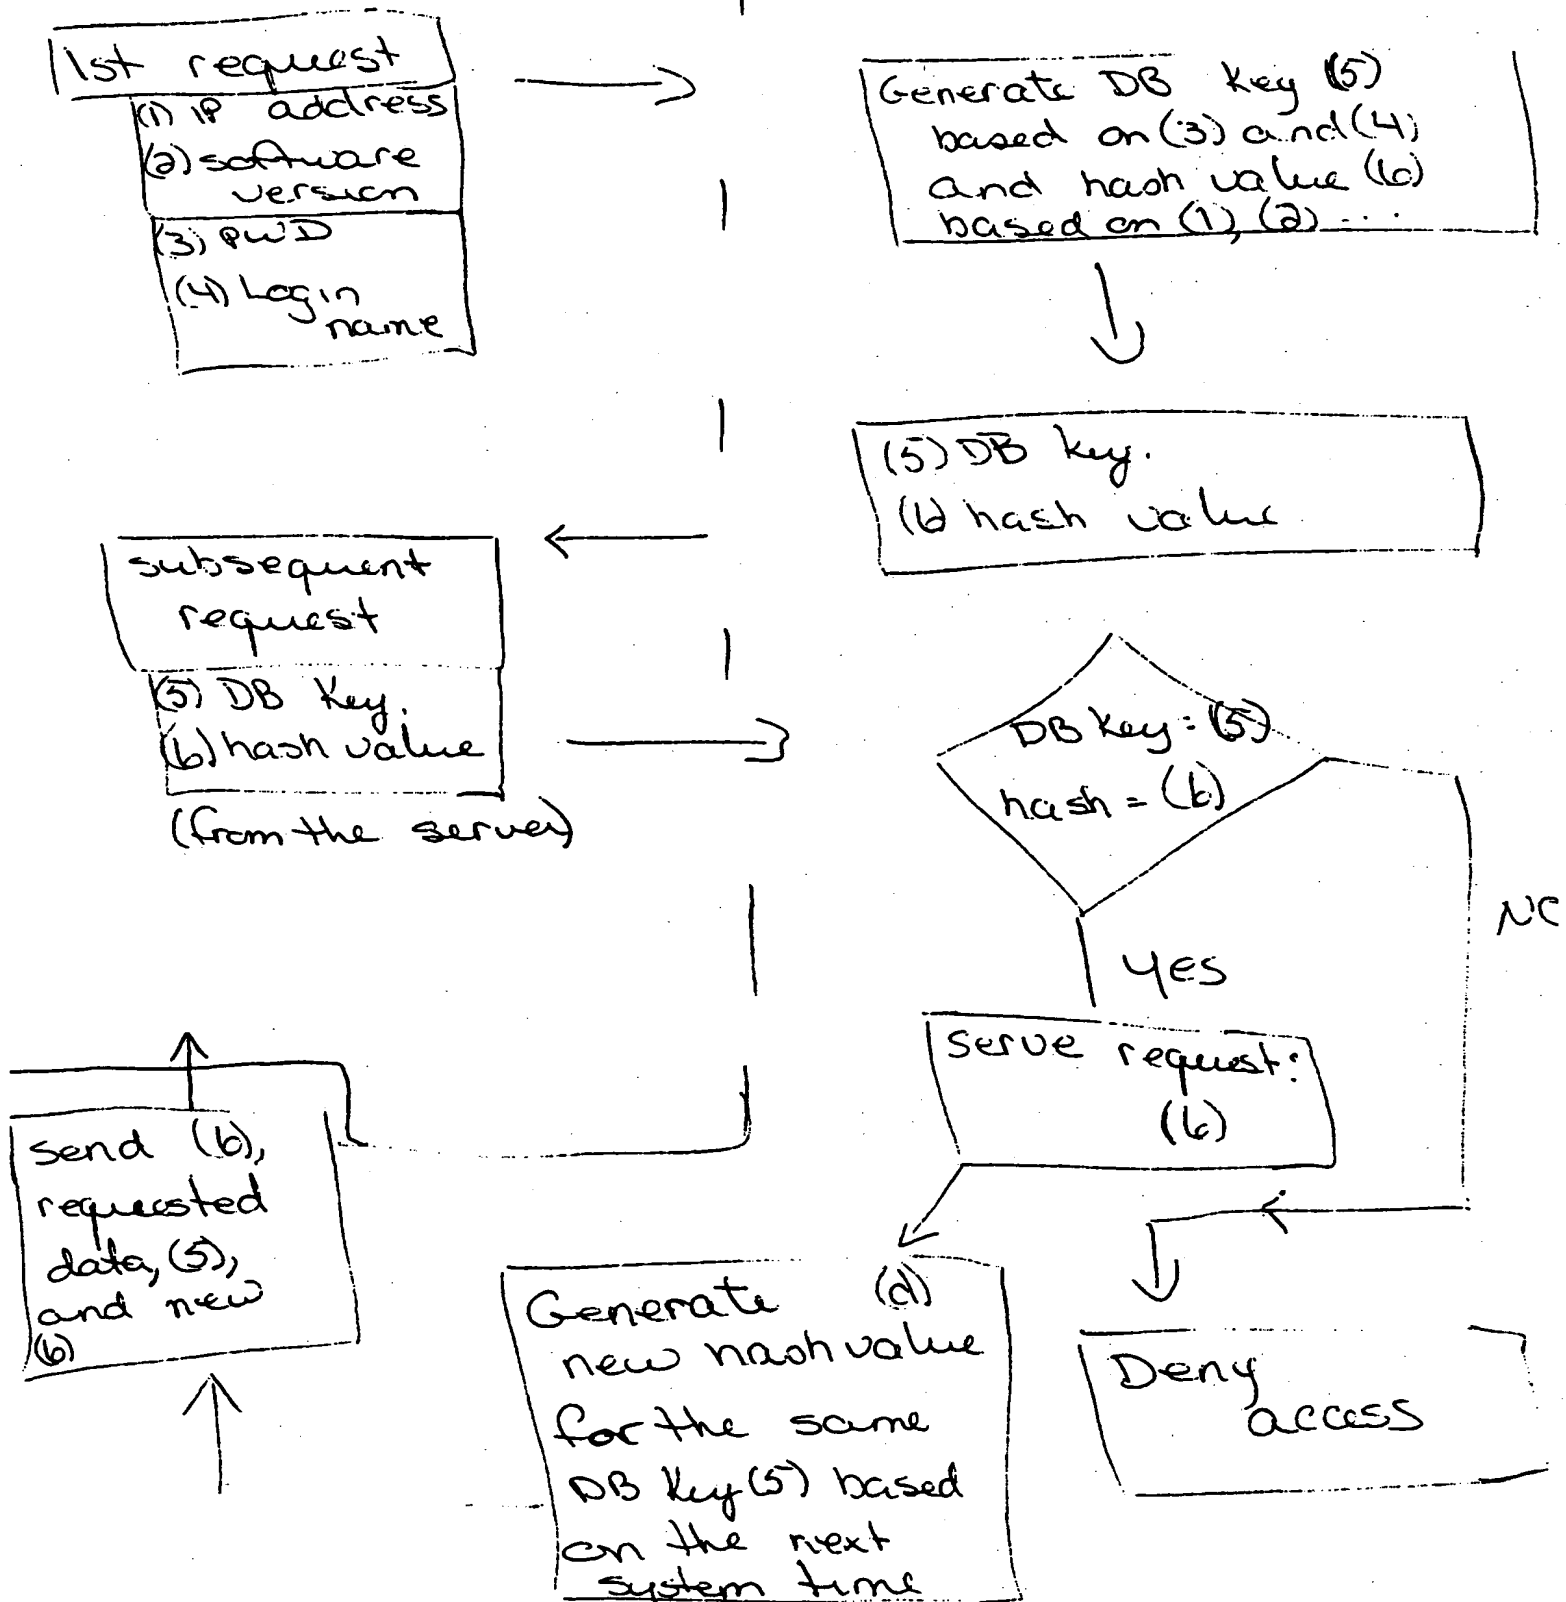 1st request
(1) IP address
(2) software
version
(3) PWD
(4) Login
name
Generate DB key (5)
based on (3) and (4)
and hash value (6)
based on (1), (2) ...
(5) DB key.
(6) hash value
subsequent
request
(5) DB key.
(6) hash value
(from the server)
DB key = (5)
hash = (6)
NO
Yes
Serve request:
(6)
send (6),
requested
data, (5),
and new
(6)
Generate (d)
new hash value
for the same
DB key (5) based
on the next
system time
Deny
access